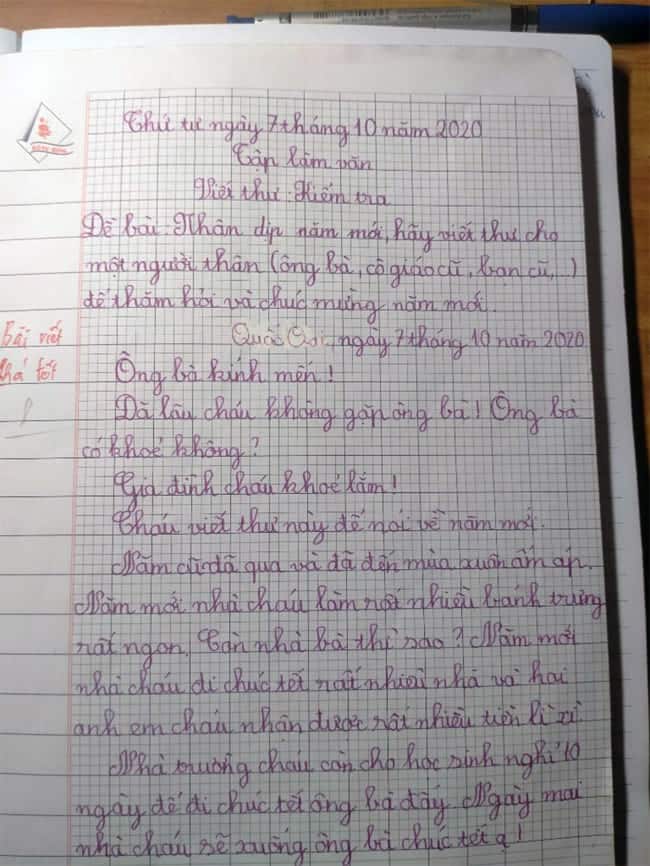 Thứ tư ngày 7 tháng 10 năm 2020
Tập làm văn
Viết thư: Kiểm tra
Đề bài: Nhân dịp năm mới, hãy viết thư cho
một người thân (ông bà, cô giáo cũ, bạn cũ,...)
để thăm hỏi và chúc mừng năm mới.
Bài viết
khá tốt
Quốc Oai, ngày 7 tháng 10 năm 2020
Ông bà kính mến!
Đã lâu cháu không gặp ông bà! Ông bà
có khoẻ không?
Gia đình cháu khoẻ lắm!
Cháu viết thư này để nói về năm mới.
Năm cũ đã qua và đã đến mùa xuân ấm áp.
Năm mới nhà cháu làm rất nhiều bánh trưng
rất ngon. Còn nhà bà thì sao? Năm mới
nhà cháu đi chúc tết rất nhiều nhà và hai
anh em cháu nhận được rất nhiều tiền lì xì.
Nhà trường cháu còn cho học sinh nghỉ 10
ngày để đi chúc tết ông bà đấy. Ngày mai
nhà cháu sẽ xuống ông bà chúc tết ạ!